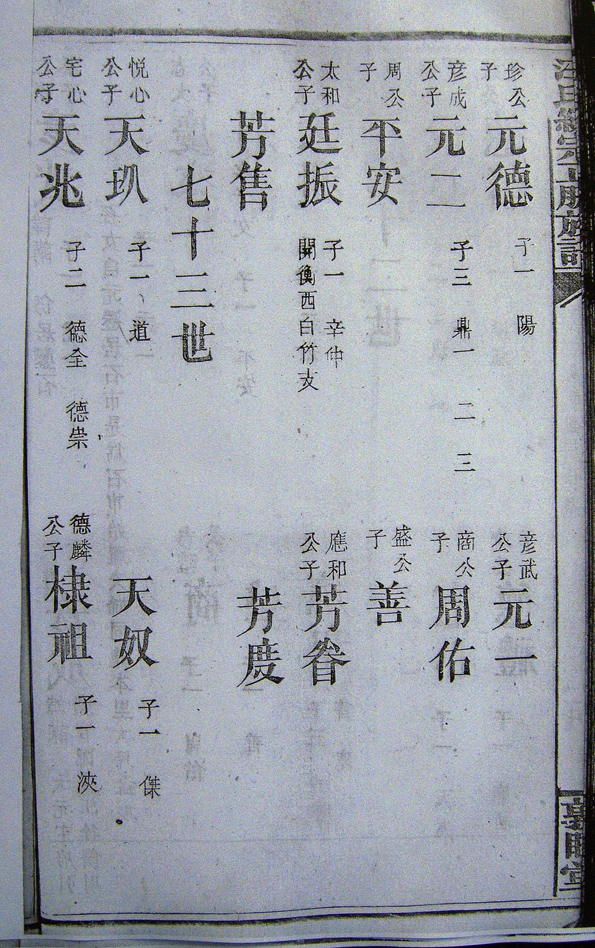 珍公子 元德 子一 陽
彦武公子 元一
彦成公子 元二 子三 鼎一 二 三
商公子 周佑
周公子 平安
盛公子 善
太和公子 廷振 子一 辛仲 開衡西白竹支
應和公子 芳眷
芳售
芳慶
七十三世
悦心公子 天玑 子一 道
天奴 子一 傑
宅心公子 天兆 子二 德全 德崇
德麟公子 棣祖 子一 浹